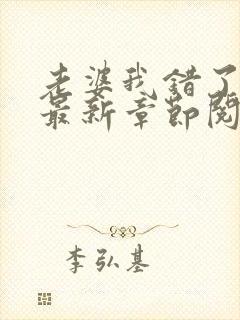 老婆我错了
最新章节阅
李弘基